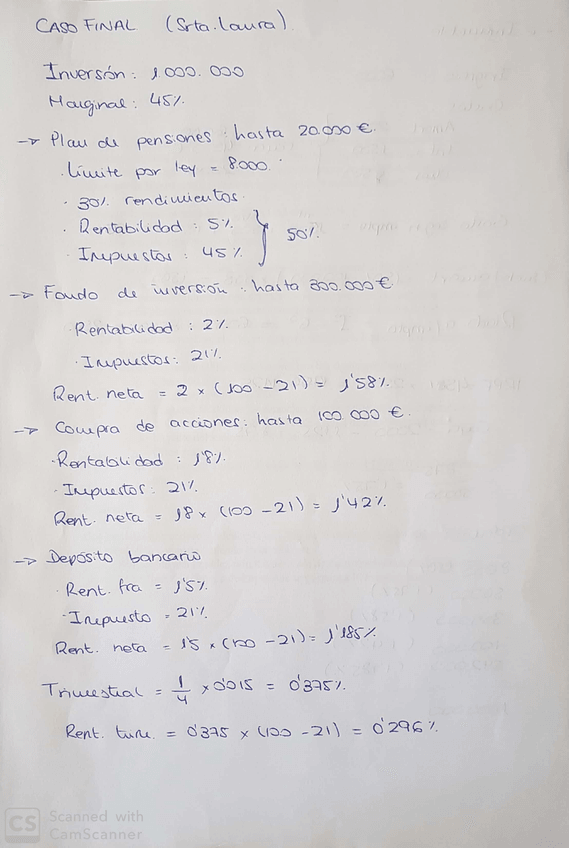 CASO FINAL (Srta. Laura).
Inversión: 1.000.000
Marginal: 45%
-> Plan de pensiones: hasta 20.000 €.
· Límite por ley = 8.000.
· 30% rendimientos.
· Rentabilidad: 5% } 50%.
· Impuestos: 45%
-> Fondo de inversión: hasta 300.000 €
Rentabilidad: 2%
· Impuestos: 21%
Rent. neta = 2 x (100 - 21) = 1'58%.
-> Compra de acciones: hasta 100 000 €.
· Rentabilidad: 1'8%.
· Impuestos: 21%
Rent. neta = 1'8 x (100 - 21) = 1'42%.
-> Depósito bancario
· Rent. fra = 1'5%
· Impuesto = 21%
Rent. neta = 1'5 x (100 - 21) = 1'185%.
Trimestral = 1/4 x 0'015 = 0'375%.
Rent. = 0'375 x (100 - 21) = 0'296%.
CS Scanned with
CamScanner